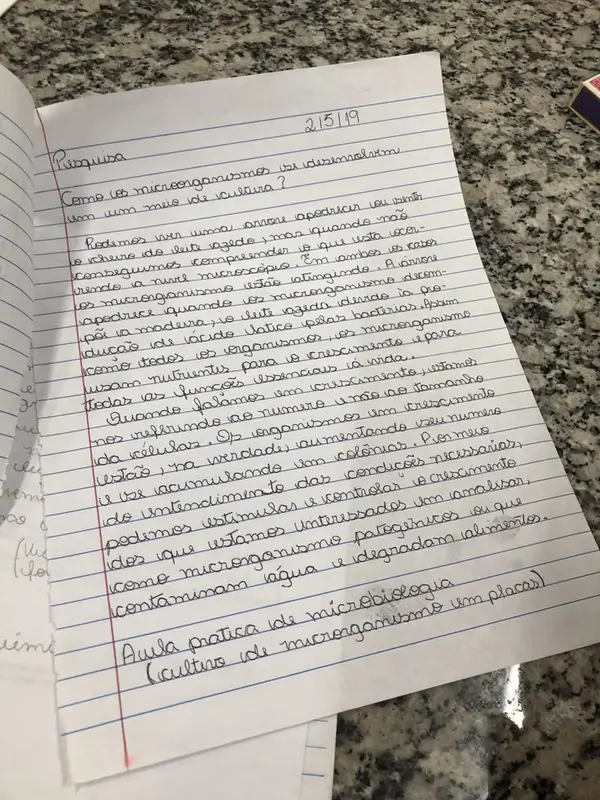 2/5/19
Pesquisa
Como os microorganismos se desenvolvem
em um meio de cultura?
Podemos ver uma arvore apodrecer ou sentir
o cheiro do leite azedo, mas quando não
conseguimos compreender o que esta ocor-
rendo a nivel microscópio. Em ambos os casos
os microrganismo estão atingindo. A árvore
apodrece quando os microrganismo decom-
põi a madeira, o leite azeda devido a pro-
dução de ácido latico pelas bactérias. Assim
como todos os organismos, os microrganismo
usam nutrientes para o crescimento e para
todas as funções essenciais á vida.
Quando falamos em crescimento, estamos
nos referindo ao numero e não ao tamanho
da células. Os organismos em crescimento
estão, na verdade, aumentando seu numero
e se acumulando em colônias. Por meio
do entendimento das condições necessarias,
podemos estimular e controlar o crescimento
dos que estamos interessados em analisar,
como microrganismo patogênicos ou que
contaminam água e degradam alimentos.
Aula pratica de microbiologia
(cultivo de microrganismo em placas)